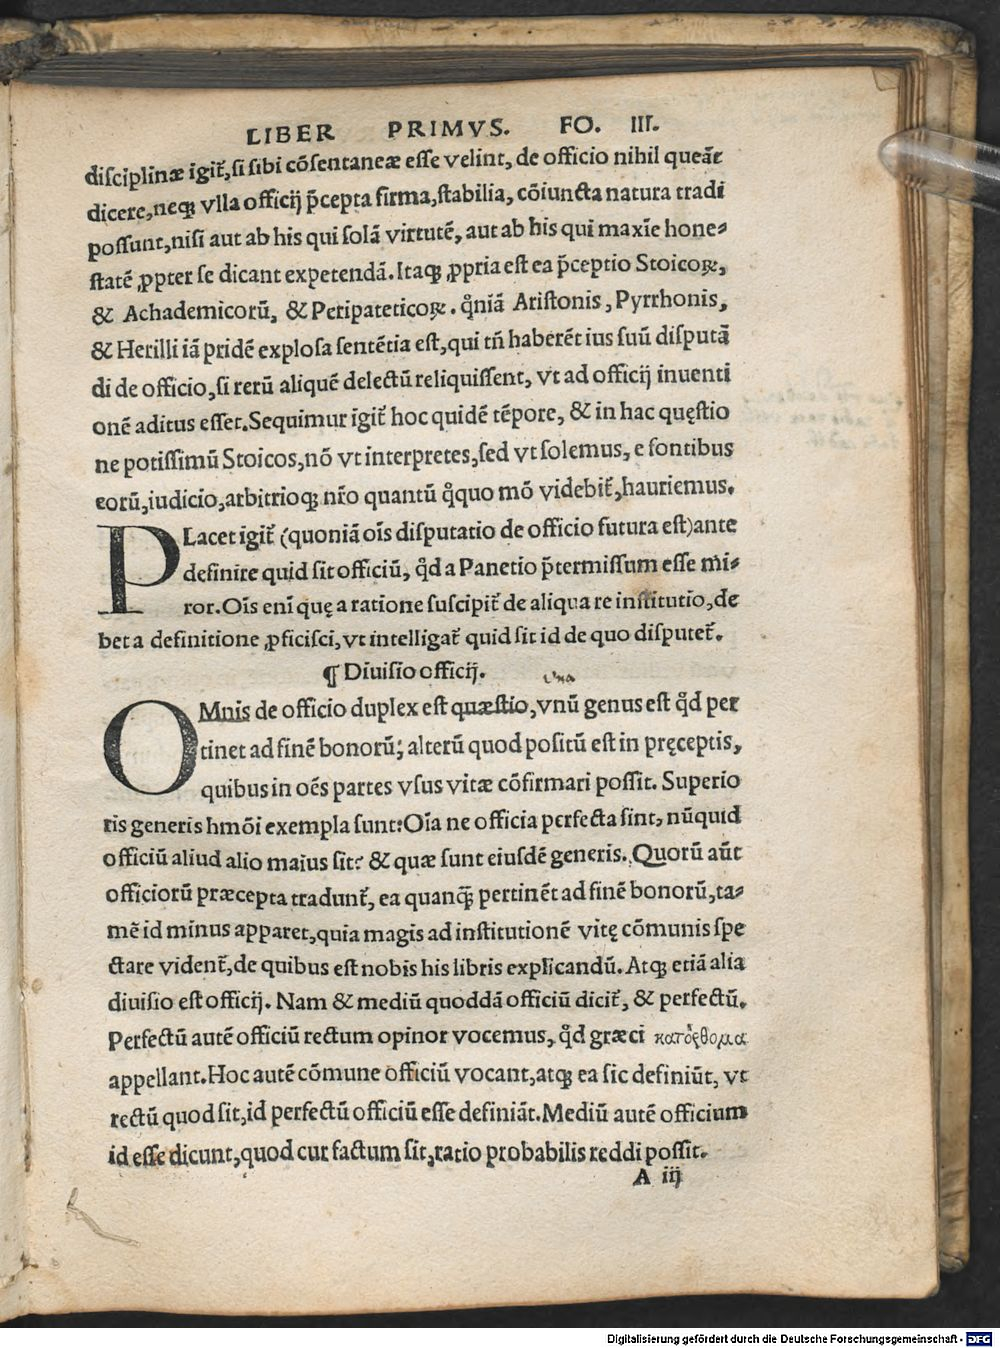 LIBER PRIMVS. FO. III.
disciplinæ igit᷑, si sibi cōsentaneæ esse velint, de officio nihil queāt
dicere, neqꝫ vlla officij p̄cepta firma, stabilia, cōiuncta natura tradi
possunt, nisi aut ab his qui solā virtutē, aut ab his qui maxīe hone⸗
statē ꝓpter se dicant expetendā. Itaqꝫ ꝓpria est ea p̄ceptio Stoicoꝝ,
& Achademicorū, & Peripateticoꝝ. qm̄niā Aristonis, Pyrrhonis,
& Herilli iā pridē explosa sentētia est, qui tn̄ haberēt ius suū disputā
di de officio, si rerū aliquē delectū reliquissent, vt ad officij inuenti
onē aditus esset. Sequimur igit᷑ hoc quidē tēpore, & in hac quęstio
ne potissimū Stoicos, nō vt interpretes, sed vt solemus, e fontibus
eorū, iudicio, arbitrioqꝫ nr̄o quantū q̊quo mō videbit᷑, hauriemus.
PLacet igit᷑ (quoniā oīs disputatio de officio futura est) ante
definire quid sit officiū, q̊d a Panetio p̄termissum esse mi⸗
ror. Oīs enī quę a ratione suscipit᷑ de aliqua re institutio, de
bet a definitione ꝓficisci, vt intelligat᷑ quid sit id de quo disputet᷑.
¶ Diuisio officij.
Vna
OMnis de officio duplex est quæstio, vnū genus est q̊d per
tinet ad finē bonorū; alterū quod positū est in pręceptis,
quibus in oēs partes vsus vitæ cōfirmari possit. Superio
ris generis hmōi exempla sunt: Oīa ne officia perfecta sint, nūquid
officiū aliud alio maius sit? & quæ sunt eiusdē generis. Quorū aūt
officiorū præcepta tradunt᷑, ea quanq̄ pertinēt ad finē bonorū, ta⸗
mē id minus apparet, quia magis ad institutionē vitę cōmunis spe
ctare vident᷑, de quibus est nobis his libris explicandū. Atqꝫ etiā alia
diuisio est officij. Nam & mediū quoddā officiū dicit᷑, & perfectū.
Perfectū autē officiū rectum opinor vocemus, q̊d græci κατόρθομα
appellant. Hoc autē cōmune officiū vocant, atqꝫ ea sic definiūt, vt
rectū quod sit, id perfectū officiū esse definiāt. Mediū autē officium
id esse dicunt, quod cur factum sit, ratio probabilis reddi possit.
A iij
Digitalisierung gefördert durch die Deutsche Forschungsgemeinschaft - DFG